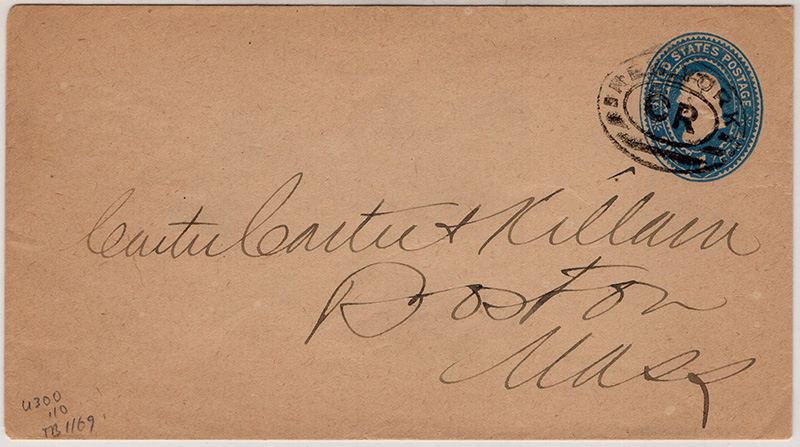 UNITED STATES POSTAGE
NEW YORK
OR
Carter Carter & Killam
Boston
Mass
U300
110
TB1169